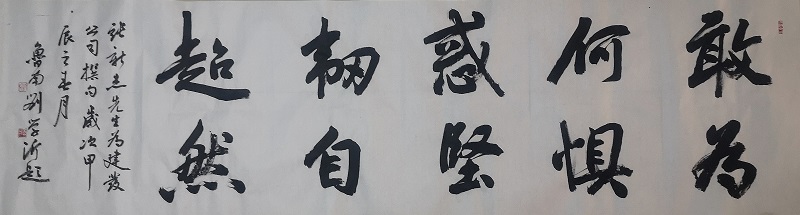 敢为
何惧
惑坚
韧自
超然
张新忠先生为建发
公司撰句岁次甲
辰之春月
鲁南刘学沂题